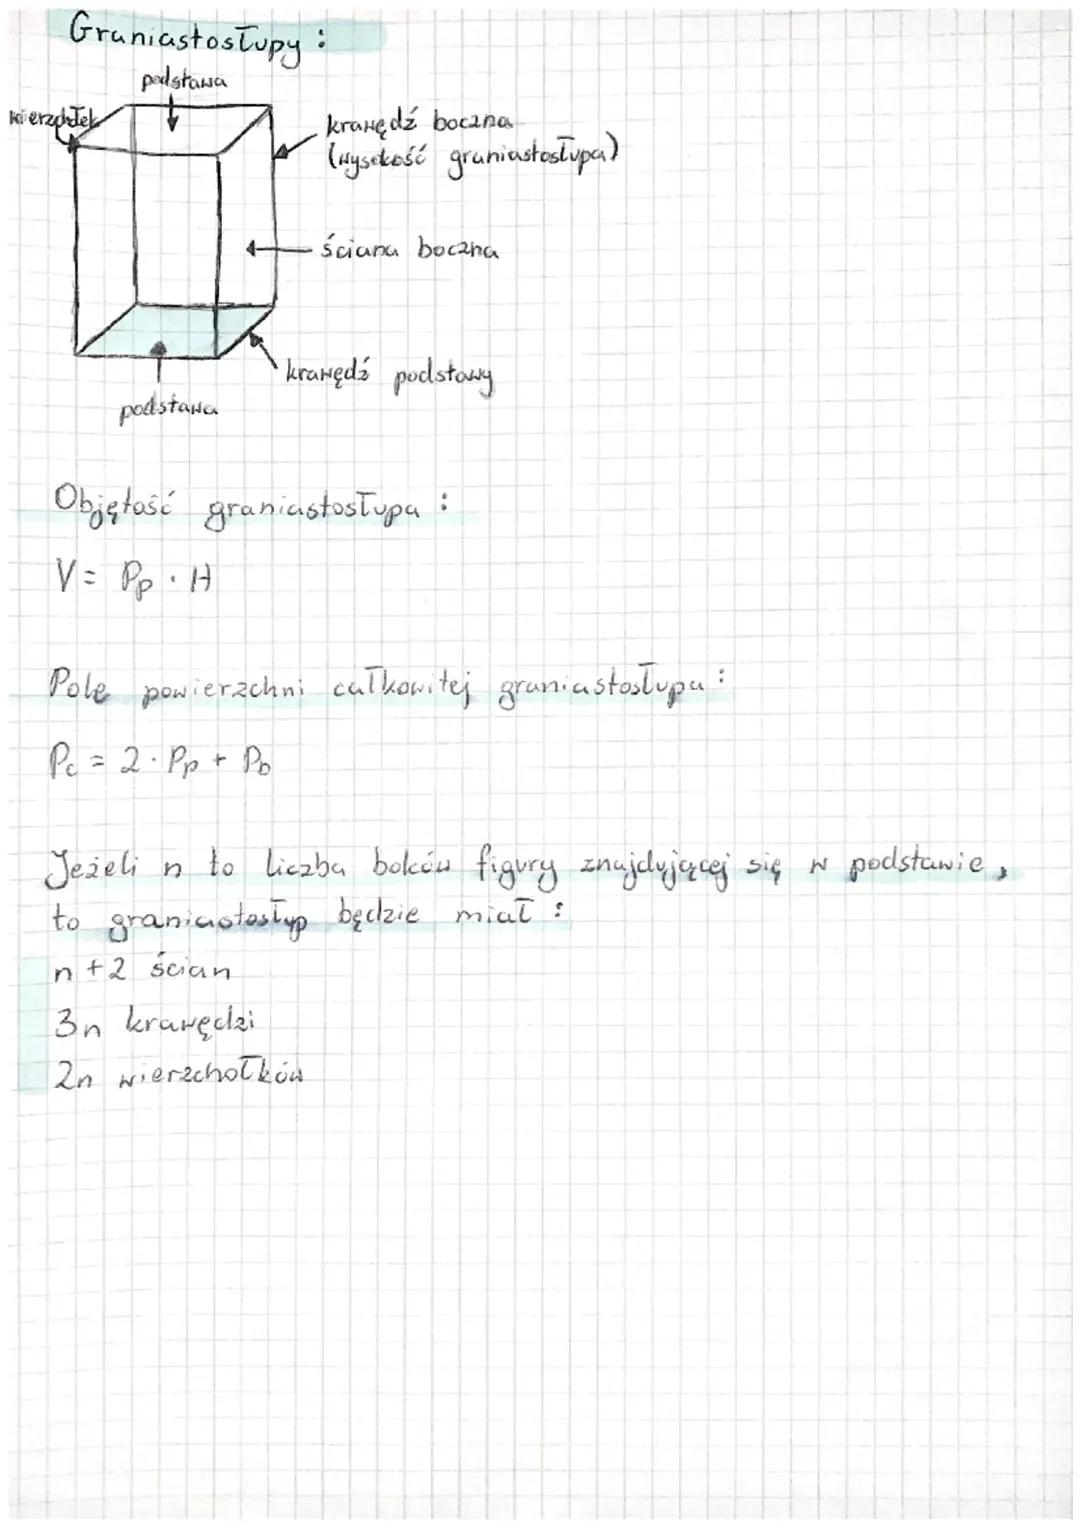 Graniastosłupy :
podstawa
wierzchołek
krawędź boczna
(wysokość graniastosłupa)
ściana boczna
krawędź podstawy
podstawa
Objętość graniastosłupa :
V = Pp · H
Pole powierzchni całkowitej graniastosłupa :
Pc = 2 · Pp + Pb
Jeżeli n to liczba boków figury znajdującej się w podstawie,
to graniastosłup będzie miał :
n + 2 ścian
3n krawędzi
2n wierzchołków